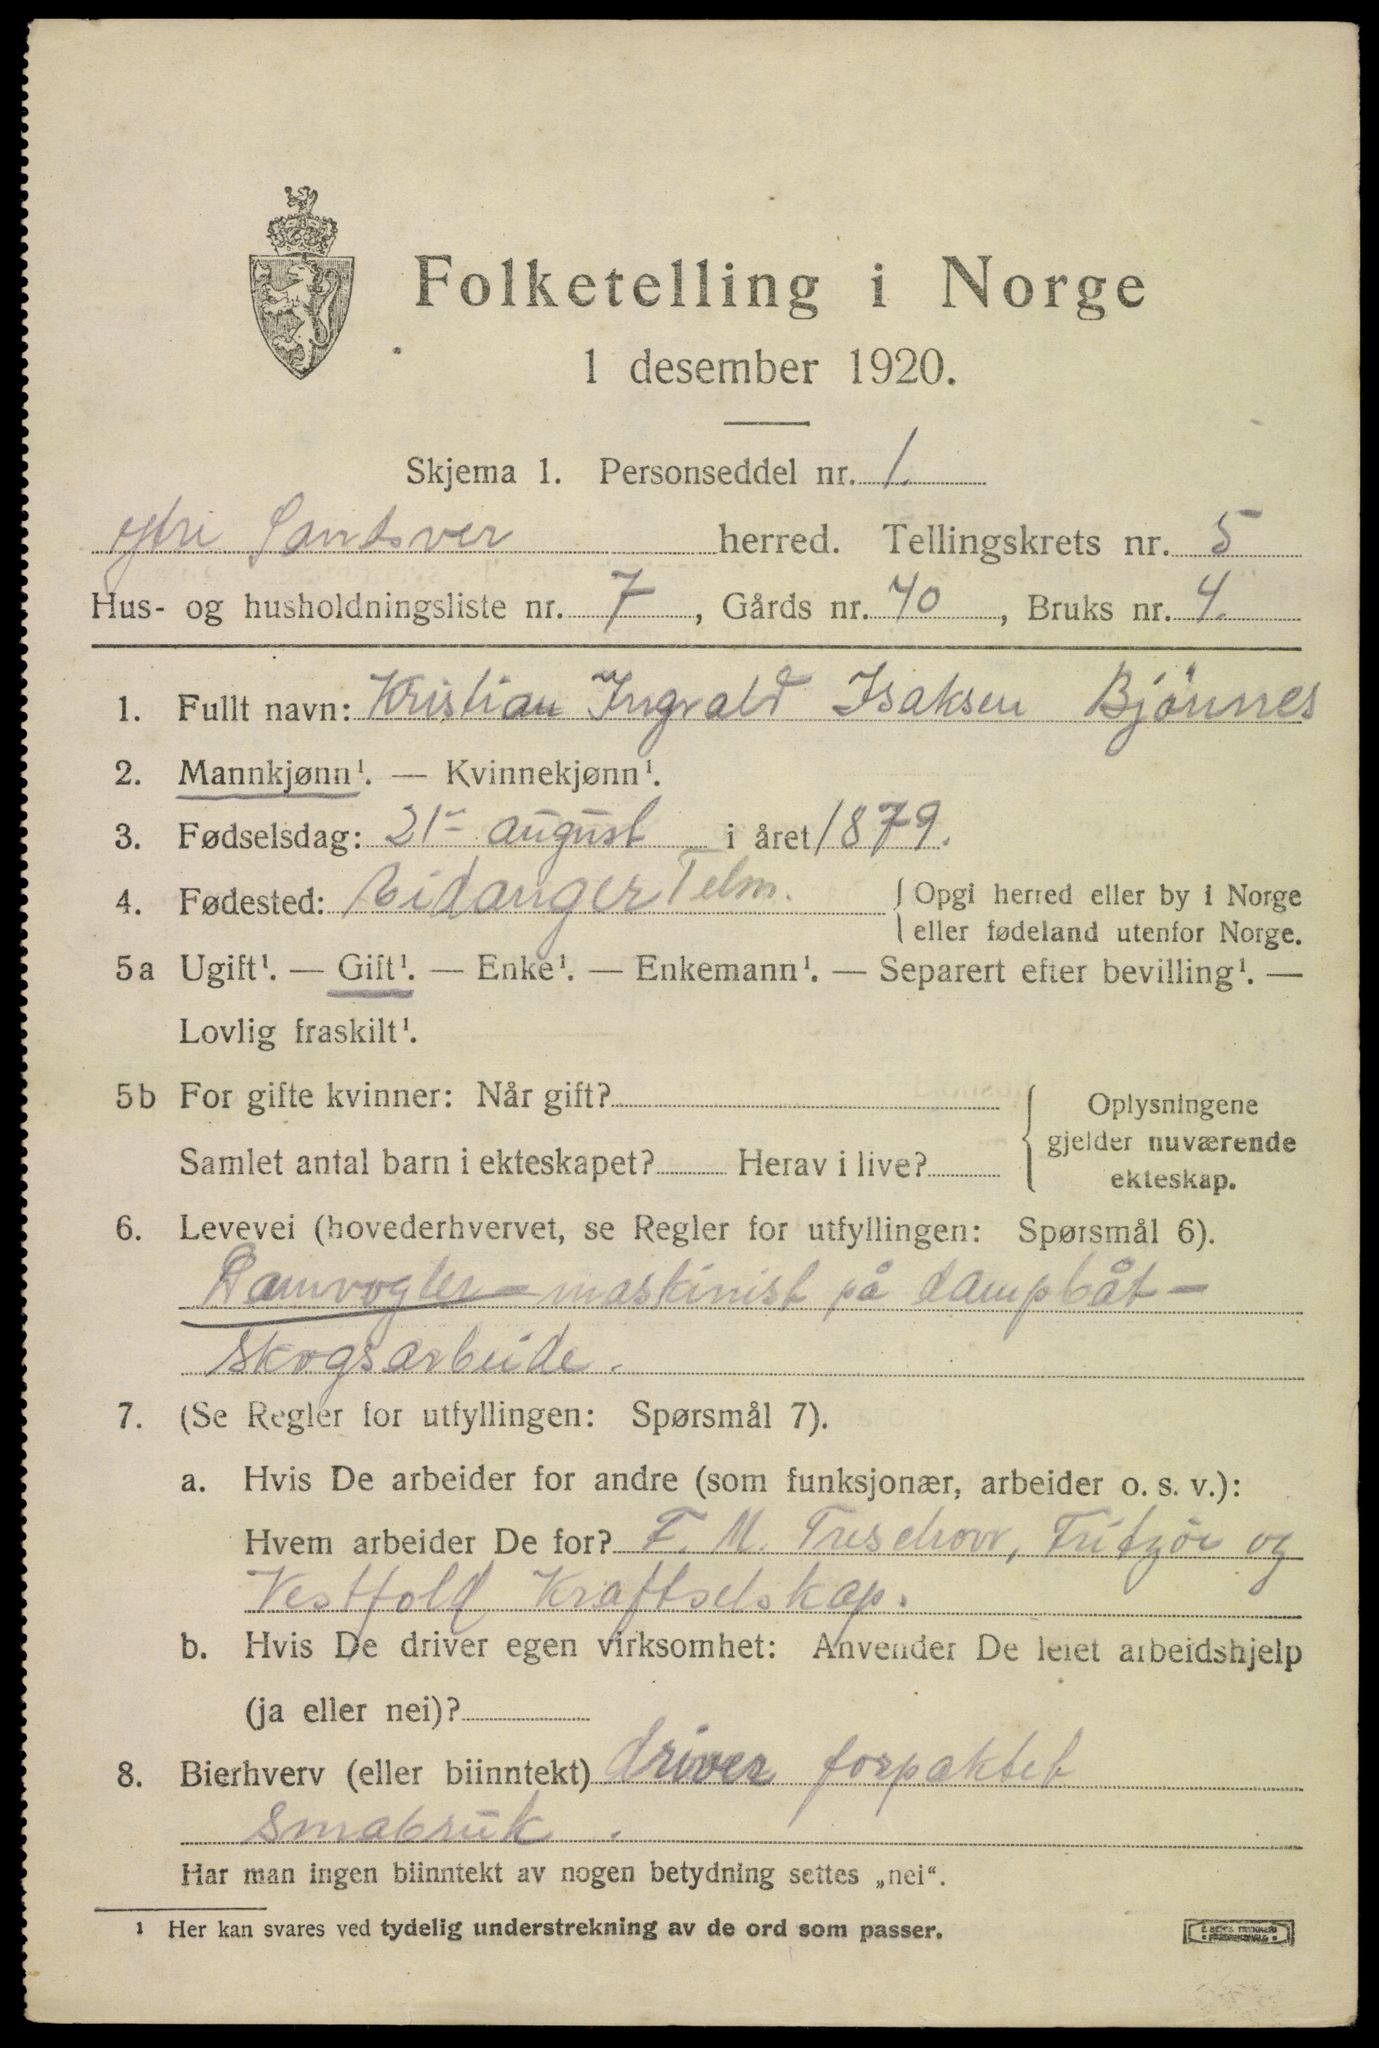 Folketelling i Norge
1 desember 1920.
Skjema 1. Personseddel nr. 1.
Ytre Sandsver herred. Tellingskrets nr. 5
Hus- og husholdningsliste nr. 7, Gårds nr. 40, Bruks nr. 4.
1. Fullt navn: Kristian Ingvald Isaksen Bjönnes
2. Mannkjønn¹. — Kvinnekjønn¹.
3. Fødselsdag: 21 august i året 1879.
4. Fødested: Eidanger Telm. Opgi herred eller by i Norge
eller fødeland utenfor Norge.
5a Ugift¹. — Gift¹. — Enke¹. — Enkemann¹. — Separert efter bevilling¹. —
Lovlig fraskilt¹.
5b For gifte kvinner: Når gift?
Samlet antal barn i ekteskapet? Herav i live?
Oplysningene
gjelder nuværende
ekteskap.
6. Levevei (hovederhvervet, se Regler for utfyllingen: Spørsmål 6).
Damvogter – maskinist på dampbåt –
skogsarbeide.
7. (Se Regler for utfyllingen: Spørsmål 7).
a. Hvis De arbeider for andre (som funksjonær, arbeider o. s. v.):
Hvem arbeider De for? F. M. Treschow, Fritzöe og
Vestfold Kraftselskap.
b. Hvis De driver egen virksomhet: Anvender De leiet arbeidshjelp
(ja eller nei)?
8. Bierhverv (eller biinntekt) driver forpaktet
smabruk.
Har man ingen biinntekt av nogen betydning settes „nei“.
¹ Her kan svares ved tydelig understrekning av de ord som passer.